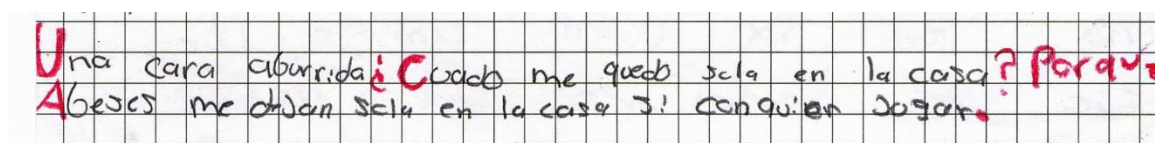 Una cara aburrida ¿Cuado me quedo sola en la casa? Porque
Abeses me dejan sola en la casa si con quien Jogar.